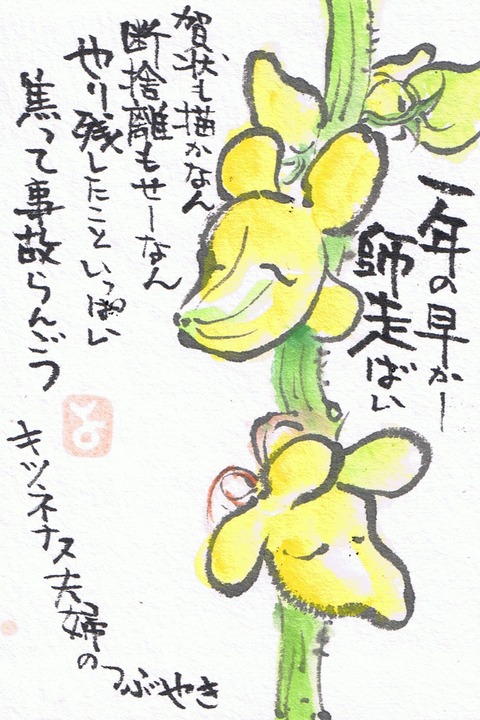 一年の早かー
師走ばい
賀状も描かなん
断捨離もせーなん
やり残したこといっぱい
焦って事故らんごつ
と
キツネナス夫婦の
つぶやき